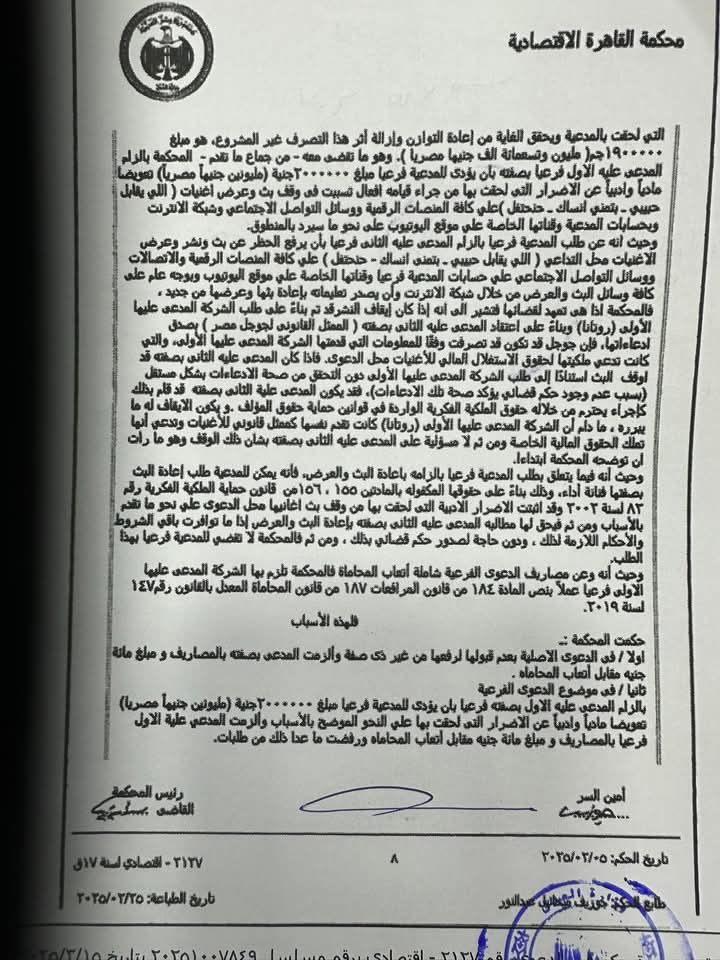 محكمة القاهرة الاقتصادية
التي لحقت بالمدعية ويحقق الغاية من إعادة التوازن وإزالة أثر هذا التصرف غير المشروع، هو مبلغ
١٩٠٠٠٠٠جم( مليون وتسعمائة الف جنيها مصريا ). وهو ما تقضى معه - من جماع ما تقدم - المحكمة بالزام
المدعى عليه الاول فرعيا بصفته بأن يؤدى للمدعية فرعيا مبلغ ٢٠٠٠٠٠٠جنية (مليونين جنيهاً مصرياً) تعويضا
مادياً وادبياً عن الاضرار التى لحقت بها من جراء قيامه افعال تسببت فى وقف بث وعرض اغنيات ( اللي يقابل
حبيبي ـ بتمني أنساك ـ حنحتفل )علي كافة المنصات الرقمية ووسائل التواصل الاجتماعي وشبكة الانترنت
وبحسابات المدعية وقناتها الخاصة علي موقع اليوتيوب على نحو ما سيرد بالمنطوق.
وحيث انه عن طلب المدعية فرعيا بالزام المدعى عليه الثانى فرعيا بأن يرفع الحظر عن بث ونشر وعرض
الاغنيات محل التداعي ( اللي يقابل حبيبي ـ بتمنى أنساك - حنحتفل ) علي كافة المنصات الرقمية والاتصالات
ووسائل التواصل الاجتماعي علي حسابات المدعية فرعيا وقناتها الخاصة علي موقع اليوتيوب وبوجه عام على
كافة وسائل البث والعرض من خلال شبكة الانترنت وأن يصدر تعليماته بإعادة بثها وعرضها من جديد ،
فالمحكمة اذا هى تمهد لقضائها فتشير الى انه إذا كان إيقاف النشرقد تم بناءً على طلب الشركة المدعى عليها
الأولى (روتانا) وبناءً على أعتقاد المدعى عليه الثانى بصفته ( الممثل القانونى لجوجل مصر ) بصدق
ادعاءاتها، فإن جوجل قد تكون قد تصرفت وفقًا للمعلومات التي قدمتها الشركة المدعى عليها الأولى، والتي
كانت تدعي ملكيتها لحقوق الاستغلال المالي للأغنيات محل الدعوى. فاذا كان المدعى عليه الثانى بصفته قد
اوقف البث استنادًا إلى طلب الشركة المدعى عليها الأولى دون التحقق من صحة الادعاءات بشكل مستقل
(بسبب عدم وجود حكم قضائي يؤكد صحة تلك الادعاءات)، فقد يكون المدعى علية الثانى بصفته قد قام بذلك
كإجراء يحترم من خلاله حقوق الملكية الفكرية الواردة في قوانين حماية حقوق المؤلف .و يكون الايقاف له ما
يبرره ، ما دام أن الشركة المدعى عليها الأولى (روتانا) كانت تقدم نفسها كممثل قانوني للأغنيات وتدعي أنها
تملك الحقوق المالية الخاصة ومن ثم لا مسؤلية على المدعى عليه الثانى بصفته بشان ذلك الوقف وهو ما رات
ان توضحه المحكمة ابتداءا.
وحيث أنه فيما يتعلق بطلب المدعية فرعيا بالزامه باعادة البث والعرض، فأنه يمكن للمدعية طلب إعادة البث
بصفتها فنانة أداء، وذلك بناءً على حقوقها المكفوله بالمادتين ١٥٥ ، ١٥٦من قانون حماية الملكية الفكرية رقم
٨٢ لسنة ٢٠٠٢ وقد اثبتت الاضرار الادبية التى لحقت بها من وقف بث اغانيها محل الدعوى علي نحو ما تقدم
بالأسباب ومن ثم فيحق لها مطالبه المدعى عليه الثانى بصفته بإعادة البث والعرض إذا ما توافرت باقي الشروط
والأحكام اللازمة لذلك ، ودون حاجة لصدور حكم قضائي بذلك ، ومن ثم فالمحكمة لا تقضي للمدعية فرعيا بهذا
الطلب.
وحيث أنه وعن مصاريف الدعوى الفرعية شاملة أتعاب المحاماة فالمحكمة تلزم بها الشركة المدعى عليها
الاولى فرعيا عملاً بنص المادة ١٨٤ من قانون المرافعات ١٨٧ من قانون المحاماة المعدل بالقانون رقم١٤٧
لسنة ٢٠١٩.
فلهذه الأسباب
حكمت المحكمة :ـ
اولا / فى الدعوى الاصلية بعدم قبولها لرفعها من غير ذى صفة وألزمت المدعى بصفته بالمصاريف و مبلغ مائة
جنيه مقابل أتعاب المحاماه .
ثانيا / فى موضوع الدعوى الفرعية
بالزام المدعى عليه الاول بصفته فرعيا بان يؤدى للمدعية فرعيا مبلغ ٢٠٠٠٠٠٠جنية (مليونين جنيهاً مصريا)
تعويضا مادياً وادبياً عن الاضرار التى لحقت بها علي النحو الموضح بالأسباب وألزمت المدعي علية الاول
فرعيا بالمصاريف و مبلغ مائة جنيه مقابل أتعاب المحاماه ورفضت ما عدا ذلك من طلبات.
أمين السر
رئيس المحكمة
القاضى
تاريخ الحكم: ٢٠٢٥/٠٢/٠٥
٨
٢١٢٧ - اقتصادي لسنة ١٧ق
طابع الحكم: جوزيف ميخائيل عبدالنور
تاريخ الطباعة: ٢٠٢٥/٠٢/٢٥
٢١٢٧ - اقتصادي برقم مسلسل ٢٠٢٥١٠٠٧٨٤٩ بتاريخ